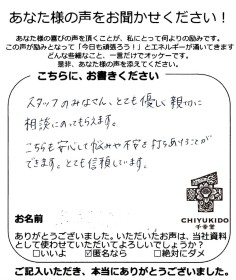 あなた様の声をお聞かせください！
あなた様の喜びの声を頂くことが、私にとって何よりの励みです。
この声が励みとなって「今日も頑張ろう！」とエネルギーが湧いてきます
どんな些細なこと、一言だけでオッケーです。
是非、あなた様の声を添えてください。
こちらに、お書きください
スタッフのみなさん、とても優しく親切に
相談にのってもらえます。
こちらも安心して悩みや不安を打ちあけることが
できます。とても信頼しています。
CHIYUKIDO
千幸堂
お名前
ありがとうございました。いただいたお声は、当社資料
として使わせていただいてよろしいでしょうか？
□いいよ ☑匿名なら □絶対にダメ
ご記入いただき、本当にありがとうございました。